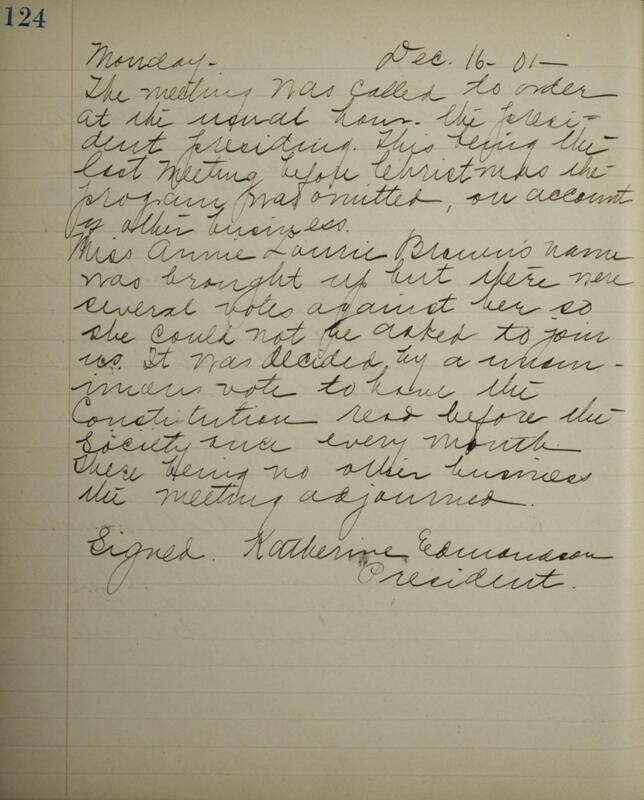 124
Monday- Dec. 16- 01-
The meeting was called to order
at the usual hour- the presi-
dent presiding. This being the
last meeting before Christmas the
program was omitted, on account
of other business.
Miss Annie Laurie Brown's name
was brought up but there were
several votes against her so
she could not be asked to join
us. It was decided by a unan-
imous vote to have the
Constitution read before the
Society once every month
There being no other business
the meeting adjourned.
Signed. Katherine Edmondson
President.